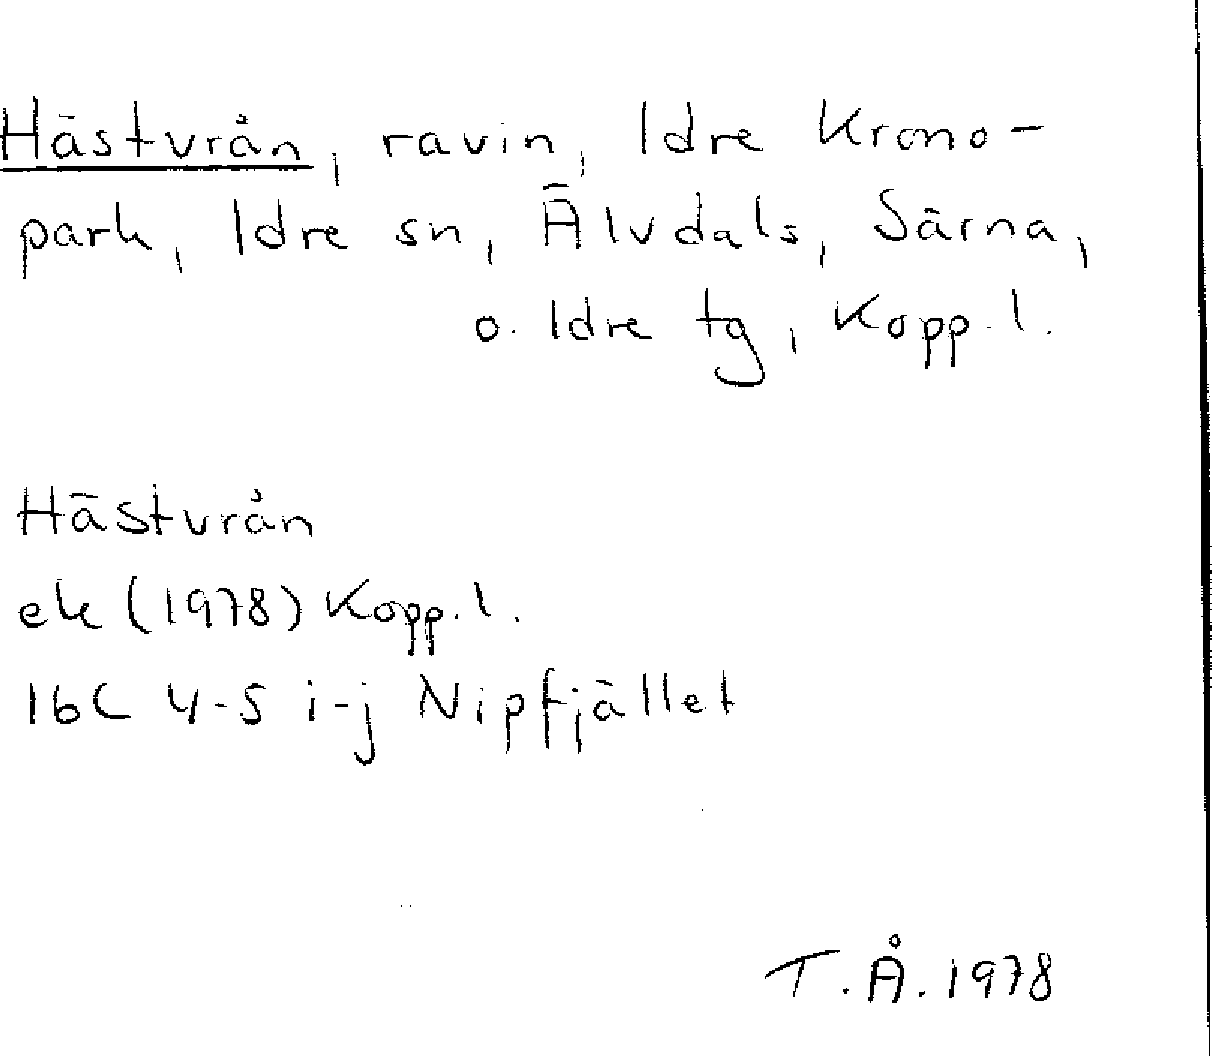 Hästvrån, ravin, Idre Krono-
park, Idre sn, Älvdals, Särna,
o. Idre tg, Kopp. l.
Hästvrån
ek (1978) Kopp. l.
16C 4-5 i-j Nipfjället
T.Å. 1978